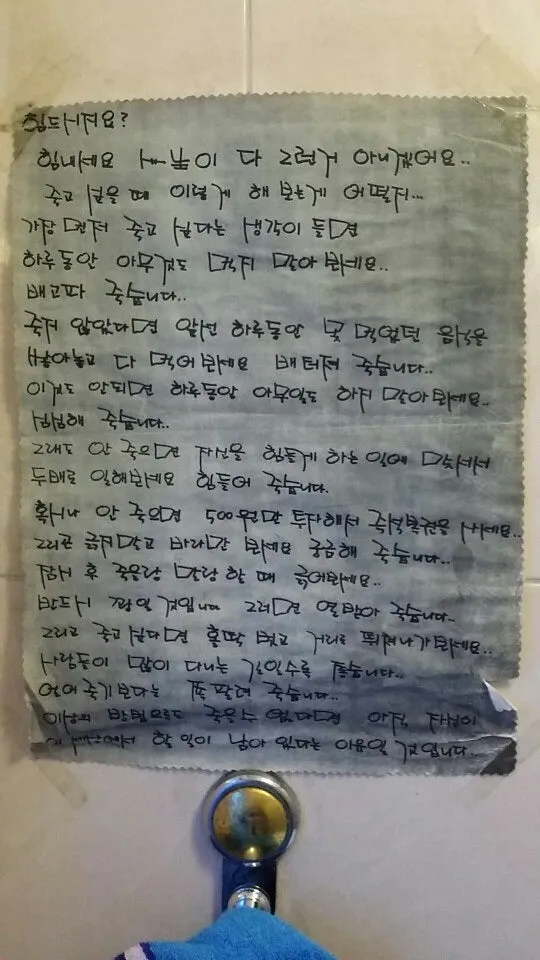 힘드시져요?
힘내세요 사는 날이 다 그런거 아니겠어요..
죽고 싶을 때 이렇게 해 보는게 어떨지...
가장 먼저 죽고 싶다는 생각이 들면
하루동안 아무것도 먹지 말아 봐세요..
배고파 죽습니다..
죽지 않았다면 앞선 하루동안 못 먹었던 음식을
쌓아놓고 다 먹어봐세요 배터져 죽습니다..
이것도 안되면 하루동안 아무일도 하지 말아봐세요..
심심해 죽습니다..
그래도 안 죽으면 자신을 힘들게 하는 일에 맞서서
두배로 일해봐세요 힘들어 죽습니다.
혹시나 안 죽으면 500원만 투자해서 즉석복권을 사세요..
그리곤 긁지말고 바라만 봐세요 궁금해 죽습니다..
잠시 후 죽을랑 말랑 할 때 긁어봐세요..
반드시 꽝일 것입니다 그러면 열받아 죽습니다..
그리고 죽고 싶다면 홀딱 벗고 거리로 뛰쳐나가봐세요..
사람들이 많이 다니는 길일수록 좋습니다..
얼어 죽기보다는 쪽 팔려 죽습니다..
이상의 방법으로도 죽을수 없다면 아직 자신이
이 세상에서 할 일이 남아 있다는 이유일 것입니다..